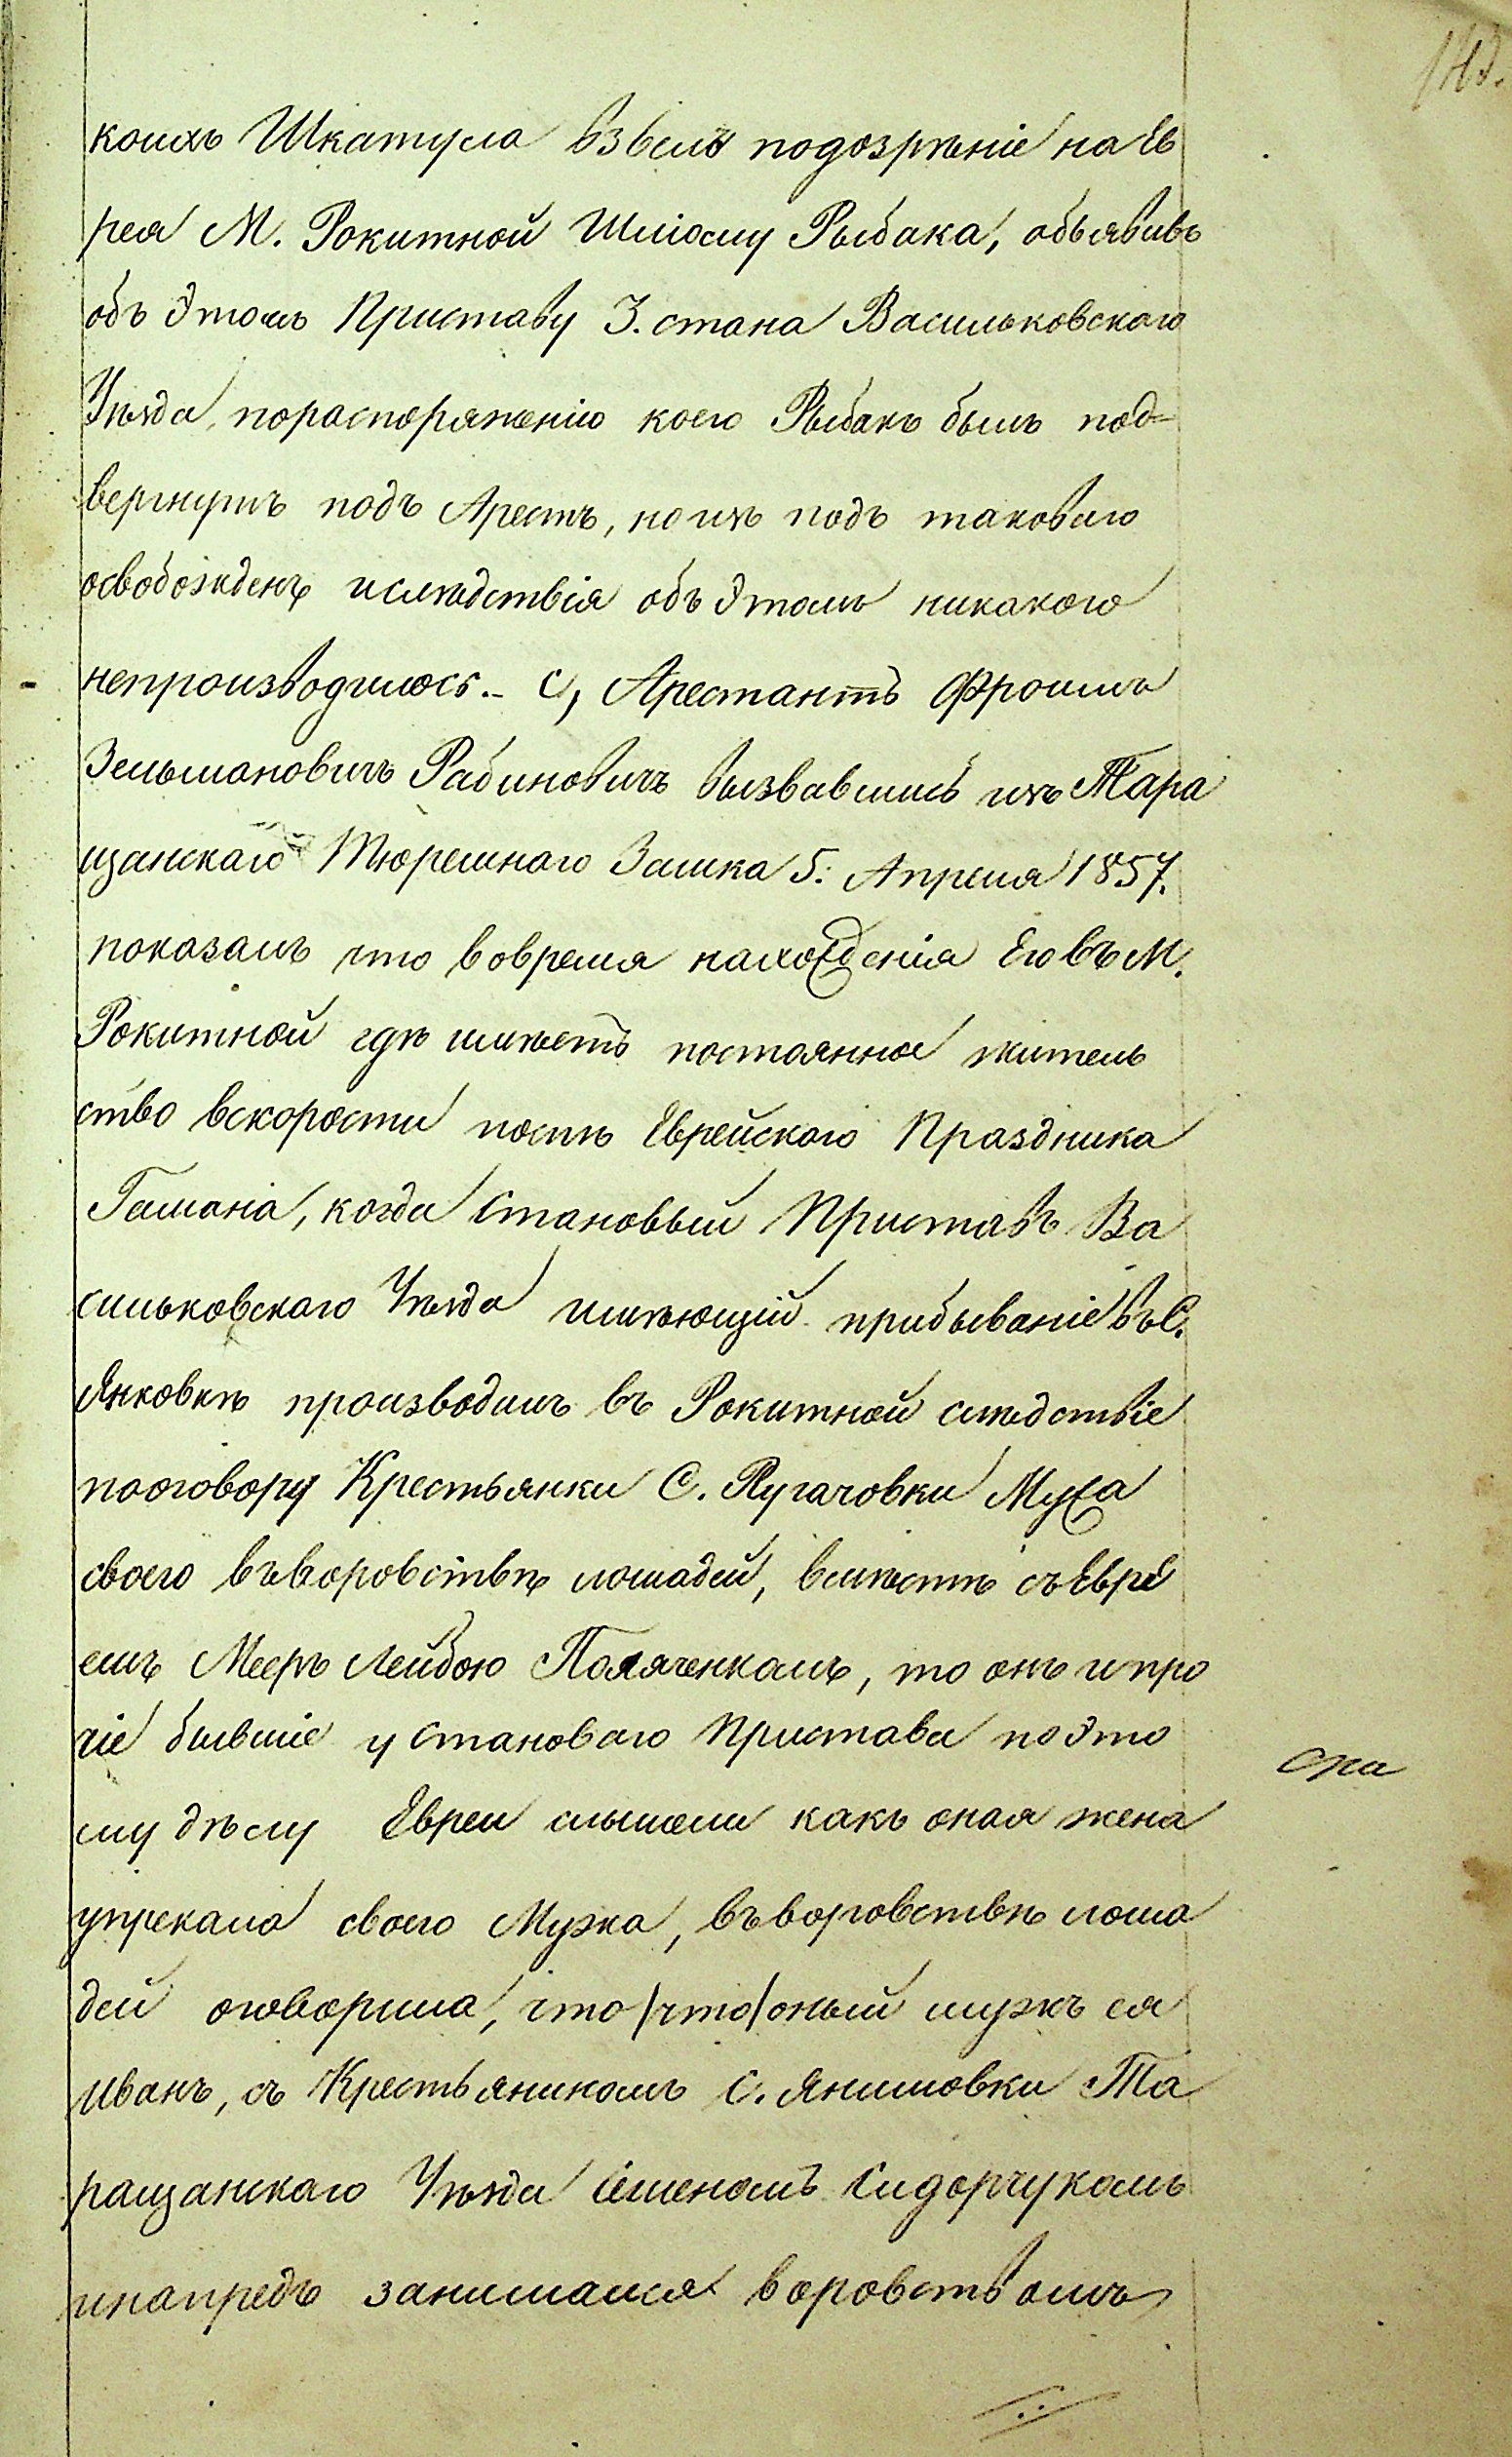 коихъ Шкатула взвелъ подозрѣніе на Ев
рея М. Рокитной Шлiому Рыбака, объявивъ
объ Этомъ Приставу 3. стана Васильковскаго
Уѣзда, пораспоряженію коего Рыбакъ былъ под=
вергнутъ подъ Арестъ, но изъ подъ таковаго
освобожденъ ислѣдствія объ Этомъ никакого
непроизводилось. С, Арестантъ Фроимъ
Зельмановичъ Рабиновичъ вызвавшись изъ Тара
щанскаго Тюремнаго Замка 5. Апреля 1857.
показалъ что вовремя нахожденія Его въ М.
Рокитной гдѣ имѣетъ постоянное житель
ство вскорости послѣ Еврейскаго Праздника
Гамана, когда Становый Приставъ Ва
сильковскаго Уѣзда имѣющій прибываніе въ С.
Янковкѣ производилъ въ Рокитной слѣдствіе
пооговору Крестьянки С. Пугачовки Мужа
своего въворовствѣ лошадей, вмѣстѣ съ Евре
емъ Мееръ Лейбою Поляченкомъ, то онъ и про
чіе бывшіе у Становаго Пристава по Это
му дѣлу Евреи слышали какъ оная жена
упрекала своего Мужа, въворовствѣ лоша
дей оговорила, что /что/ оный мужъ ея
Иванъ, съ Крестьяниномъ С. Янишовки Та
ращанскаго Уѣзда Семеномъ Сидорчукомъ
инапредъ занимался воровствомъ